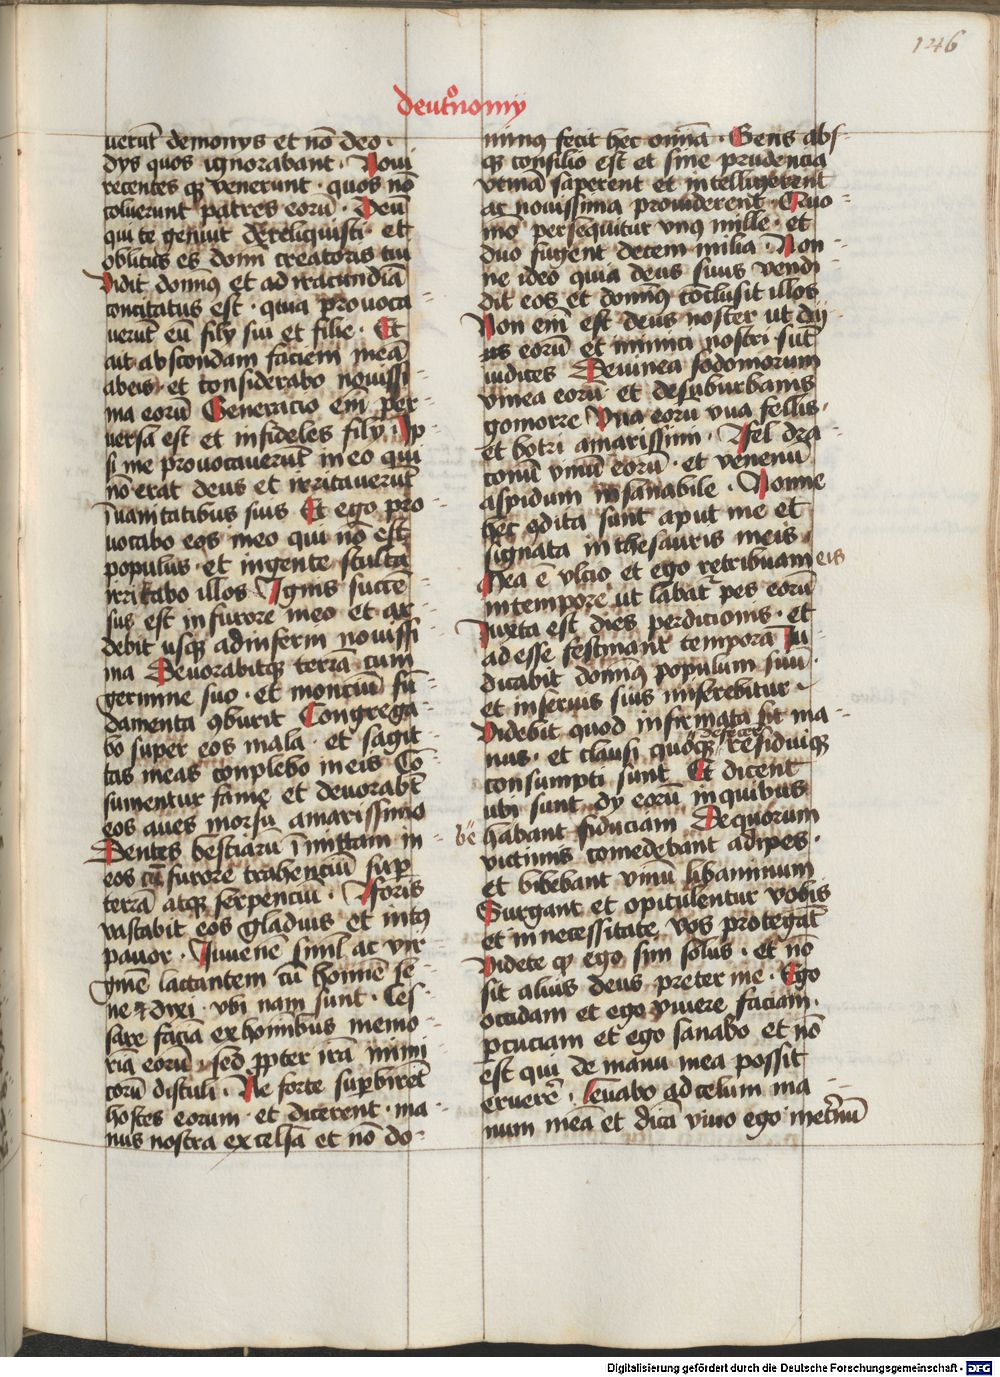 146
deut̊nomy
uerūt demonijs et nō deo ·
dijs quos ignorabant · Noui
recentes qꝫ venerunt · quos nō
coluerunt patres eorū · Deū
qui te genuit dereliquisti · et
oblitus es domī creatoris tui
Vidit domīꝰ et ad iracundiā
concitatus est · quia prouoca⸗
uerūt eū filij sui et filie · Et
ait abscondam faciem meā
abeis · et considerabo nouissi⸗
ma eorū Generacio enī per⸗
uersa est et infideles filij · Ip⸗
si me prouocauerūt in eo qui
nō erat deus et irritauerūt
ī uanitatibus suis Et ego pro
uocabo eos meo qui nō est
populus · et in gente stulta
irritabo illos Ignis succē⸗
sus est in furore meo et ar⸗
debit usqꝫ ad inferni nouissi⸗
ma Deuorabitqꝫ terrā cum
germine suo · et monciū fū⸗
damenta ꝯburit Congrega⸗
bo super eos mala · et sagit⸗
tas meas conplebo in eis Cō⸗
sumentur fame et deuorabūt
eos aues morsu amarissimo
Dentes bestiarū īmittam in
eos cū furore trahenciū sup̄
terrā atqꝫ serpenciū · Aforis
vastabit eos gladius et intꝰ
pauor · Iuuenē siml̄ ac vir⸗
ginē lactantem cū homīe se⸗
ne Et dixi · vbi nam sunt · Ces⸗
sare faciā ex homībus memo⸗
riā eorū sed ꝓpter irā inimi⸗
corū distuli · Ne forte sup̄birēt
hostes eorum · et dicerent · ma⸗
nus nostra excelsa et nō do⸗
minꝰ fecit hec omīa · Gens abs⸗
qꝫ consilio est et sine prudencia
vtinā saperent et intelligerent
ac nouissima prouiderent · Quo⸗
mō persequitur vnꝰ mille · et
duo fugent decem milia · Non⸗
ne ideo quia deus suus vendi⸗
dit eos et domīꝰ conclusit illos
Non enī est deus noster ut dij
us eorū et inimici nostri sūt
iudices De uinea sodomorum
vinea eorū et de suburbanis
gomorre Vua eorū vua fellis ·
et botri amarissimi · Fel dra⸗
conū vinū eorū · et venenū
aspidum insanabile · Nonne
hec ꝯdita sunt aput me et
signata in thesauris meis ·
Mea ē vlcio et ego retribuam eis
in tempore ut labat᷑ pes eorū
Iuxta est dies perdicionis · et
ad esse festinant tempora Iu⸗
dicabit domīꝰ populum suū ·
et in seruis suis miserebitur ·
Videbit quod infirmata sit ma⸗
nus · et clausi quoqꝫ residuiqꝫ
consumpti sunt Et dicent
ubi sunt dij eorū in quibus
bē habant fiduciam De quorum
victimis comedebant adipes ·
et bibebant vinū libaminum
Surgant et opitulentur vobis
et in necessitate vos protegāt
Videte qꝫ ego sim solus · et nō
sit alius deus preter me · Ego
occidam et ego viuere faciam ·
ꝑcuciam et ego sanabo et nō
est qui de manu mea possit
eruere · Leuabo ad celum ma⸗
num meā et dicā viuo ego inet̄nū
Digitalisierung gefördert durch die Deutsche Forschungsgemeinschaft - DFG